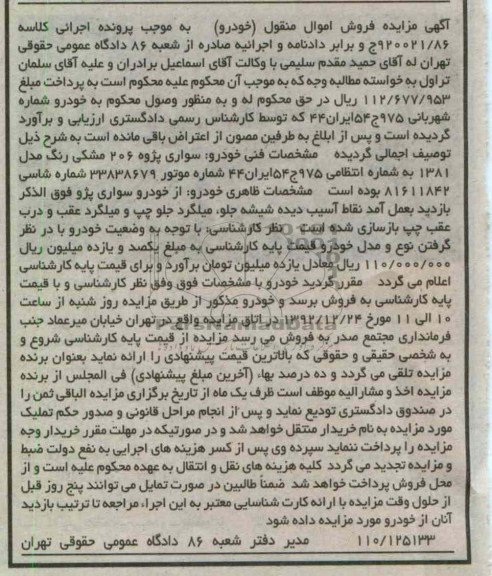 آگهی مزایده فروش اموال منقول (خودرو) به موجب پرونده اجرائی کلاسه
۹۲۰۰۲۱/۸۶ج و برابر دادنامه و اجرائیه صادره از شعبه ۸۶ دادگاه عمومی حقوقی
تهران له آقای حمید مقدم سلیمی با وکالت آقای اسماعیل برادران و علیه آقای سلمان
تراول به خواسته مطالبه وجه که به موجب آن محکوم علیه محکوم است به پرداخت مبلغ
۱۱۲/۶۷۷/۹۵۳ ریال در حق محکوم له و به منظور وصول محکوم به خودرو شماره
شهربانی ۹۷۵ج۵۴ایران۴۴ که توسط کارشناس رسمی دادگستری ارزیابی و برآورد
گردیده است و پس از ابلاغ به طرفین مصون از اعتراض باقی مانده است به شرح ذیل
توصیف اجمالی گردیده مشخصات فنی خودرو: سواری پژوه ۲۰۶ مشکی رنگ مدل
۱۳۸۱ به شماره انتظامی ۹۷۵ج۵۴ایران۴۴ شماره موتور ۳۳۸۳۸۶۷۹ شماره شاسی
۸۱۶۱۱۸۴۲ بوده است مشخصات ظاهری خودرو: از خودرو سواری پژو فوق الذکر
بازدید بعمل آمد نقاط آسیب دیده شیشه جلو، میلگرد جلو چپ و میلگرد عقب و درب
عقب چپ بازسازی شده است نظر کارشناسی: با توجه به وضعیت خودرو با در نظر
گرفتن نوع و مدل خودرو قیمت پایه کارشناسی به مبلغ یکصد و یازده میلیون ریال
۱۱۰/۰۰۰/۰۰۰ ریال معادل یازده میلیون تومان برآورد و برای قیمت پایه کارشناسی
اعلام می گردد مقرر گردید خودرو با مشخصات فوق وفق نظر کارشناسی و با قیمت
پایه کارشناسی به فروش برسد و خودرو مذکور از طریق مزایده روز شنبه از ساعت
۱۰ الی ۱۱ مورخ ۱۳۹۲/۱۲/۲۴ در اتاق مزایده واقع در تهران خیابان میرعماد جنب
فرمانداری مجتمع صدر به فروش می رسد مزایده از قیمت پایه کارشناسی شروع و
به شخصی حقیقی و حقوقی که بالاترین قیمت پیشنهادی را ارائه نماید بعنوان برنده
مزایده تلقی می گردد و ده درصد بهاء (آخرین مبلغ پیشنهادی) فی المجلس از برنده
مزایده اخذ و مشارالیه موظف است ظرف یک ماه از تاریخ برگزاری مزایده الباقی ثمن را
در صندوق دادگستری تودیع نماید و پس از انجام مراحل قانونی و صدور حکم تملیک
مورد مزایده به نام خریدار منتقل خواهد شد و در صورتیکه در مهلت مقرر خریدار وجه
مزایده را پرداخت ننماید سپرده وی پس از کسر هزینه های اجرایی به نفع دولت ضبط
و مزایده تجدید می گردد کلیه هزینه های نقل و انتقال به عهده محکوم علیه است و از
محل فروش پرداخت خواهد شد ضمناً طالبین در صورت تمایل می توانند پنج روز قبل
از حلول وقت مزایده با ارائه کارت شناسایی معتبر به این اجرا، مراجعه تا ترتیب بازدید
آنان از خودرو مورد مزایده داده شود
۱۱۰/۱۲۵۱۳۳ مدیر دفتر شعبه ۸۶ دادگاه عمومی حقوقی تهران
ParsNamadData